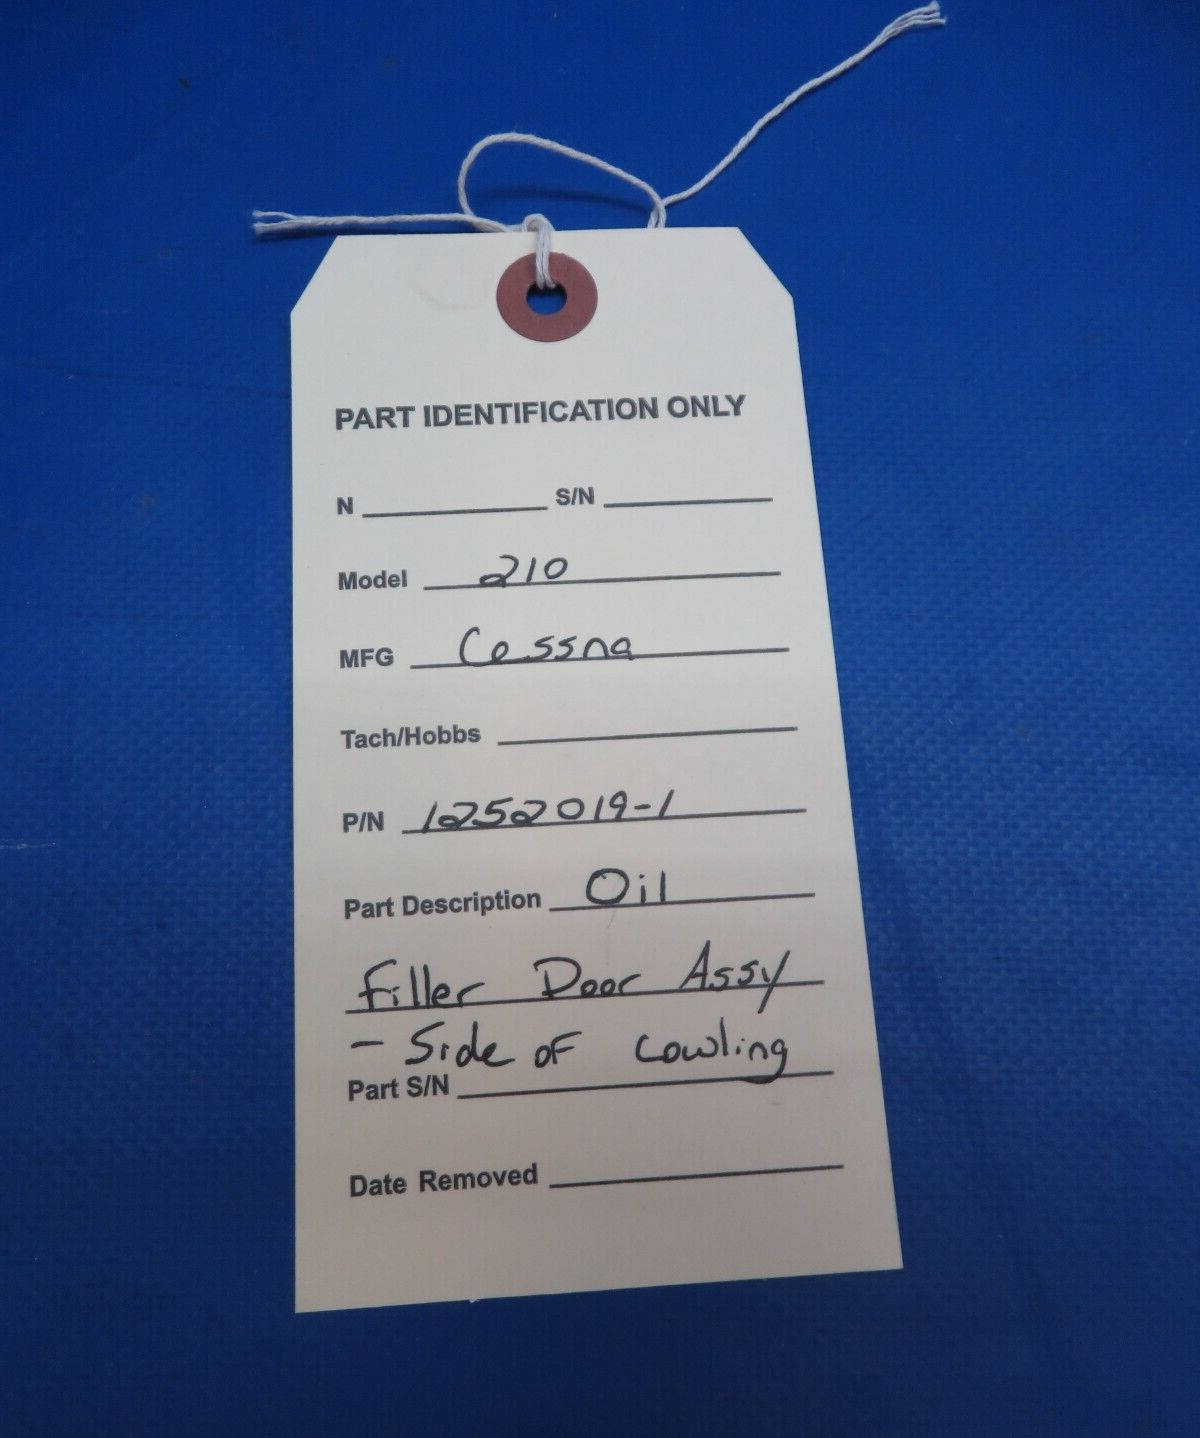 PART IDENTIFICATION ONLY
N S/N
Model 210
MFG Cessna
Tach/Hobbs
P/N 1252019-1
Part Description Oil
Filler Door Assy
- Side of Cowling
Part S/N
Date Removed